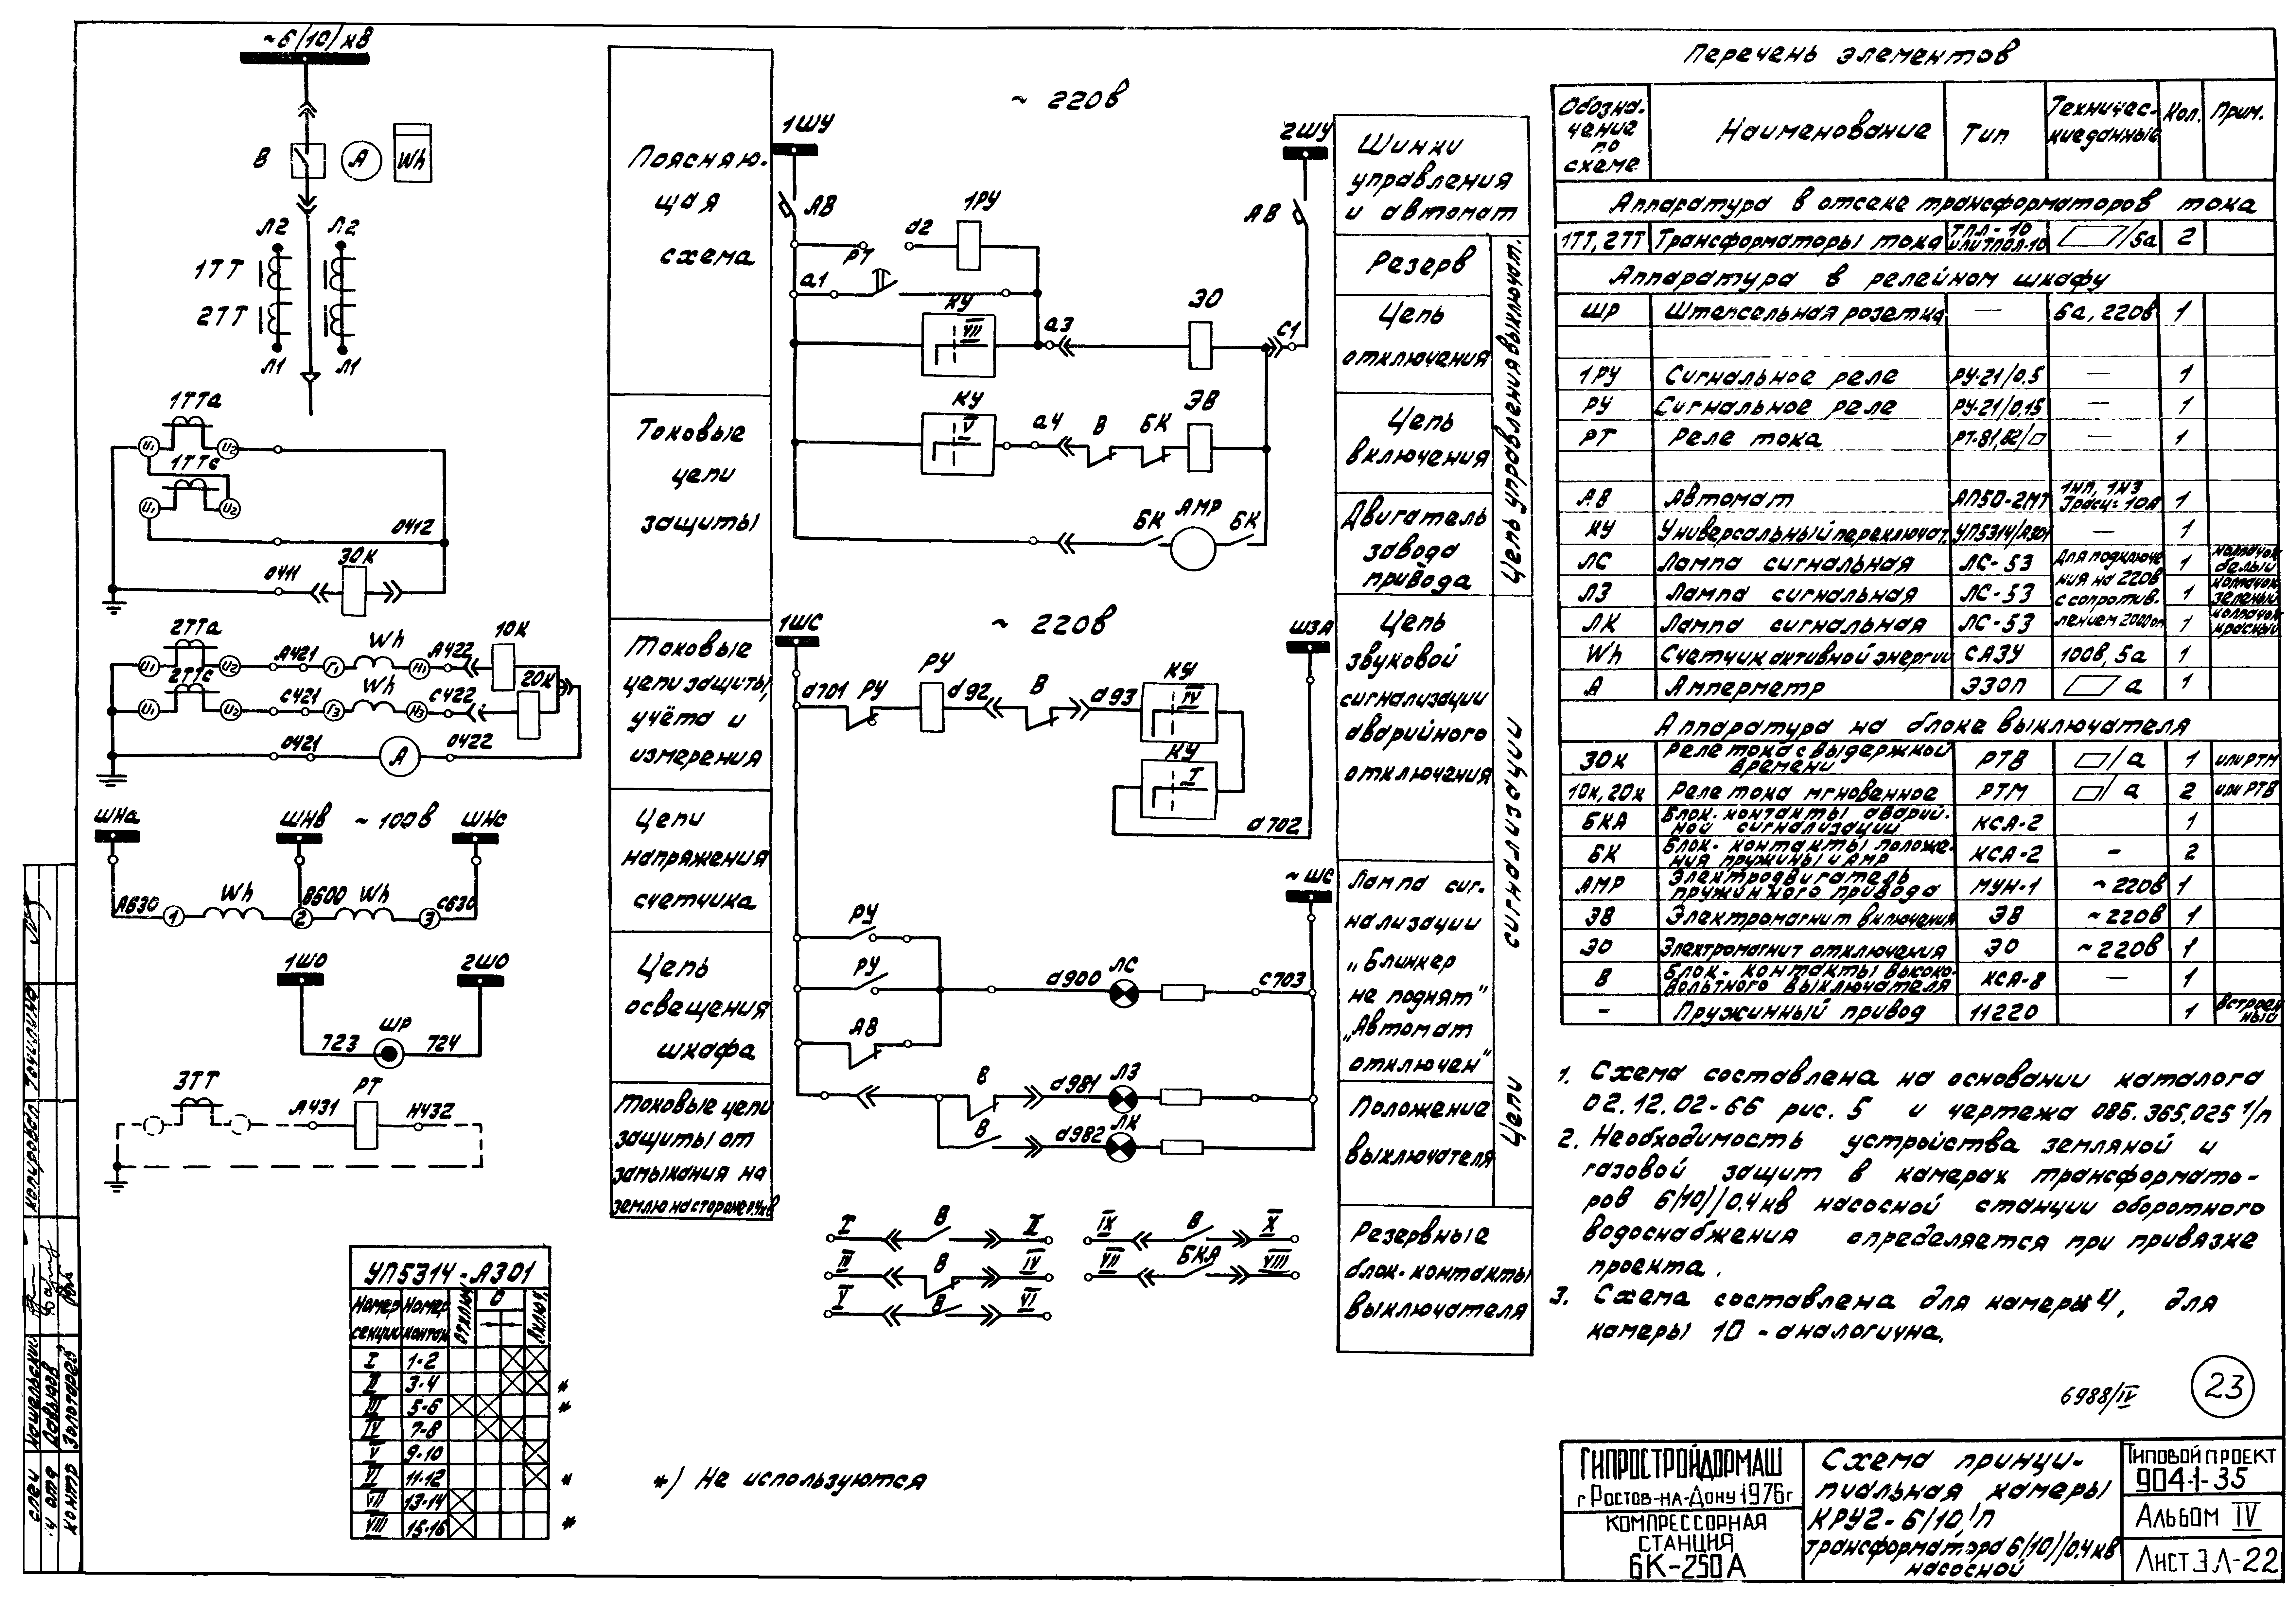 ~6/10/кВ
В
А
Wh
Л2
Л2
1ТТ
2ТТ
Л1
Л1
1ТТа
И1
И2
1ТТс
И1
И2
0412
30К
0411
2ТТа
И1
И2
А421
Г1
Wh
Н1
А422
10К
2ТТс
И1
И2
С421
Г3
Wh
Н3
С422
20К
0421
А
0422
ШНа
ШНВ
~100В
ШНс
А630
1
Wh
2
В600
Wh
3
С630
1ШО
2ШО
ШР
723
724
3ТТ
А431
РТ
Н432
УП5314-А301
Номер секции
Номер контак
отключ.
0
включ.
I 1-2
II 3-4 *
III 5-6 *
IV 7-8
V 9-10
VI 11-12 *
VII 13-14
VIII 15-16 *
*) Не используются
Поясняю-
щая
схема
Токовые
цепи
защиты
Токовые
цепи защиты,
учёта и
измерения
Цепи
напряжения
счетчика
Цепь
освещения
шкафа
Токовые цепи
защиты от
замыкания на
землю на стороне 0,4кв
~ 220в
1ШУ
2ШУ
АВ
АВ
1РУ
d2
РТ
а1
КУ
VII
а3
ЭО
С1
КУ
V
а4
В
БК
ЭВ
БК
АМР
БК
~ 220в
1ШС
ШЗА
d701
РУ
РУ
d92
В
d93
КУ
IV
КУ
I
d702
~ШС
РУ
РУ
АВ
d900
ЛС
С703
В
d981
ЛЗ
В
d982
ЛК
I
В
II
III
В
IV
V
В
VI
IX
В
X
VII
БКА
VIII
Шинки
управления
и автомат
Резерв
Цепь
отключения
Цепь
включения
Двигатель
завода
привода
Цепь управления выключат.
Цепь
звуковой
сигнализации
аварийного
отключения
Лампа сиг-
нализации
„Блинкер
не поднят"
„Автомат
отключен"
Положение
выключателя
Цепи сигнализации
Резервные
блок-контакты
выключателя
Перечень элементов
Обозна-
чение
по
схеме
Наименование
Тип
Техничес-
кие данные
Кол.
Прим.
Аппаратура в отсеке трансформаторов тока
1ТТ, 2ТТ Трансформаторы тока ТПЛ-10 или ТПОЛ-10 /5а 2
Аппаратура в релейном шкафу
ШР Штепсельная розетка — 6а, 220в 1
1РУ Сигнальное реле РУ-21/0,5 — 1
РУ Сигнальное реле РУ-21/0,15 — 1
РТ Реле тока РТ-81,82/ — 1
АВ Автомат АП50-2МТ 1НП, 1НЗ Iрасц=10А 1
КУ Универсальный переключат. УП5314/А301 — 1
ЛС Лампа сигнальная ЛС-53 Для подключе 1 колпачок белый
ЛЗ Лампа сигнальная ЛС-53 ния на 220в с сопротив- 1 колпачок зеленый
ЛК Лампа сигнальная ЛС-53 лением 2000ом 1 колпачок красный
Wh Счетчик активной энергии САЗУ 100в, 5а 1
А Амперметр Э30П а 1
Аппаратура на блоке выключателя
30к Реле тока с выдержкой времени РТВ /а 1 или РТМ
10к, 20к Реле тока мгновенное РТМ / а 2 или РТВ
БКА Блок-контакты аварий-ной сигнализации КСА-2 1
БК Блок-контакты положе-ния пружины и АМР КСА-2 - 2
АМР Электродвигатель пружинного привода МУН-1 ~220в 1
ЭВ Электромагнит включения ЭВ ~220в 1
ЭО Электромагнит отключения ЭО ~220в 1
В Блок-контакты высоко-вольтного выключателя КСА-8 — 1
- Пружинный привод 11220 1 Встроен ный
1. Схема составлена на основании каталога
02.12.02-66 рис. 5 и чертежа 086.365.025 1/п
2. Необходимость устройства земляной и
газовой защит в камерах трансформато-
ров 6/10//0,4кв насосной станции оборотного
водоснабжения определяется при привязке
проекта.
3. Схема составлена для камеры 4, для
камеры 10 - аналогична.
6988/IV
23
ГИПРОСТРОЙДОРМАШ
г Ростов-на-Дону 1976г
КОМПРЕССОРНАЯ
СТАНЦИЯ
6К-250А
Схема принци-
пиальная камеры
КРУ2-6/10/п
трансформатора 6/10//0,4кв
насосной
Типовой проект
904-1-35
Альбом IV
Лист ЭЛ-22
Копировал Точилина
контр Золотарев